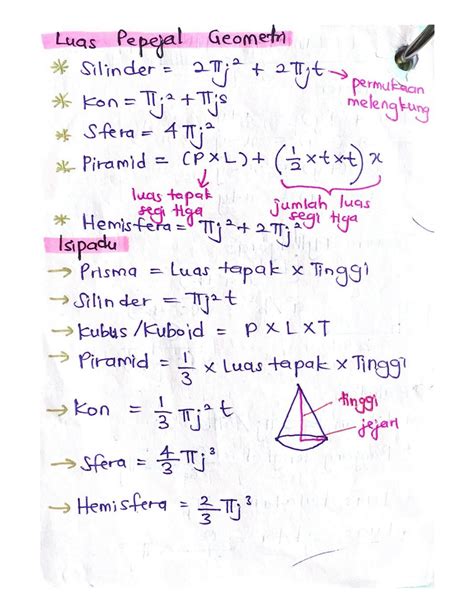 Luas Pepejal Geometri
* Silinder = 2πj² + 2πjt → permukaan melengkung
* Kon = πj² + πjs
* Sfera = 4πj²
* Piramid = (P×L) + (1/2 × t × t) x
luas tapak segi tiga
jumlah luas segi tiga
* Hemisfera = πj² + 2πj²
Isipadu
→ Prisma = Luas tapak × Tinggi
→ Silinder = πj²t
→ Kubus/Kuboid = P × L × T
→ Piramid = 1/3 × Luas tapak × Tinggi
→ Kon = 1/3 πj²t
tinggi
jejari
→ Sfera = 4/3 πj³
→ Hemisfera = 2/3 πj³